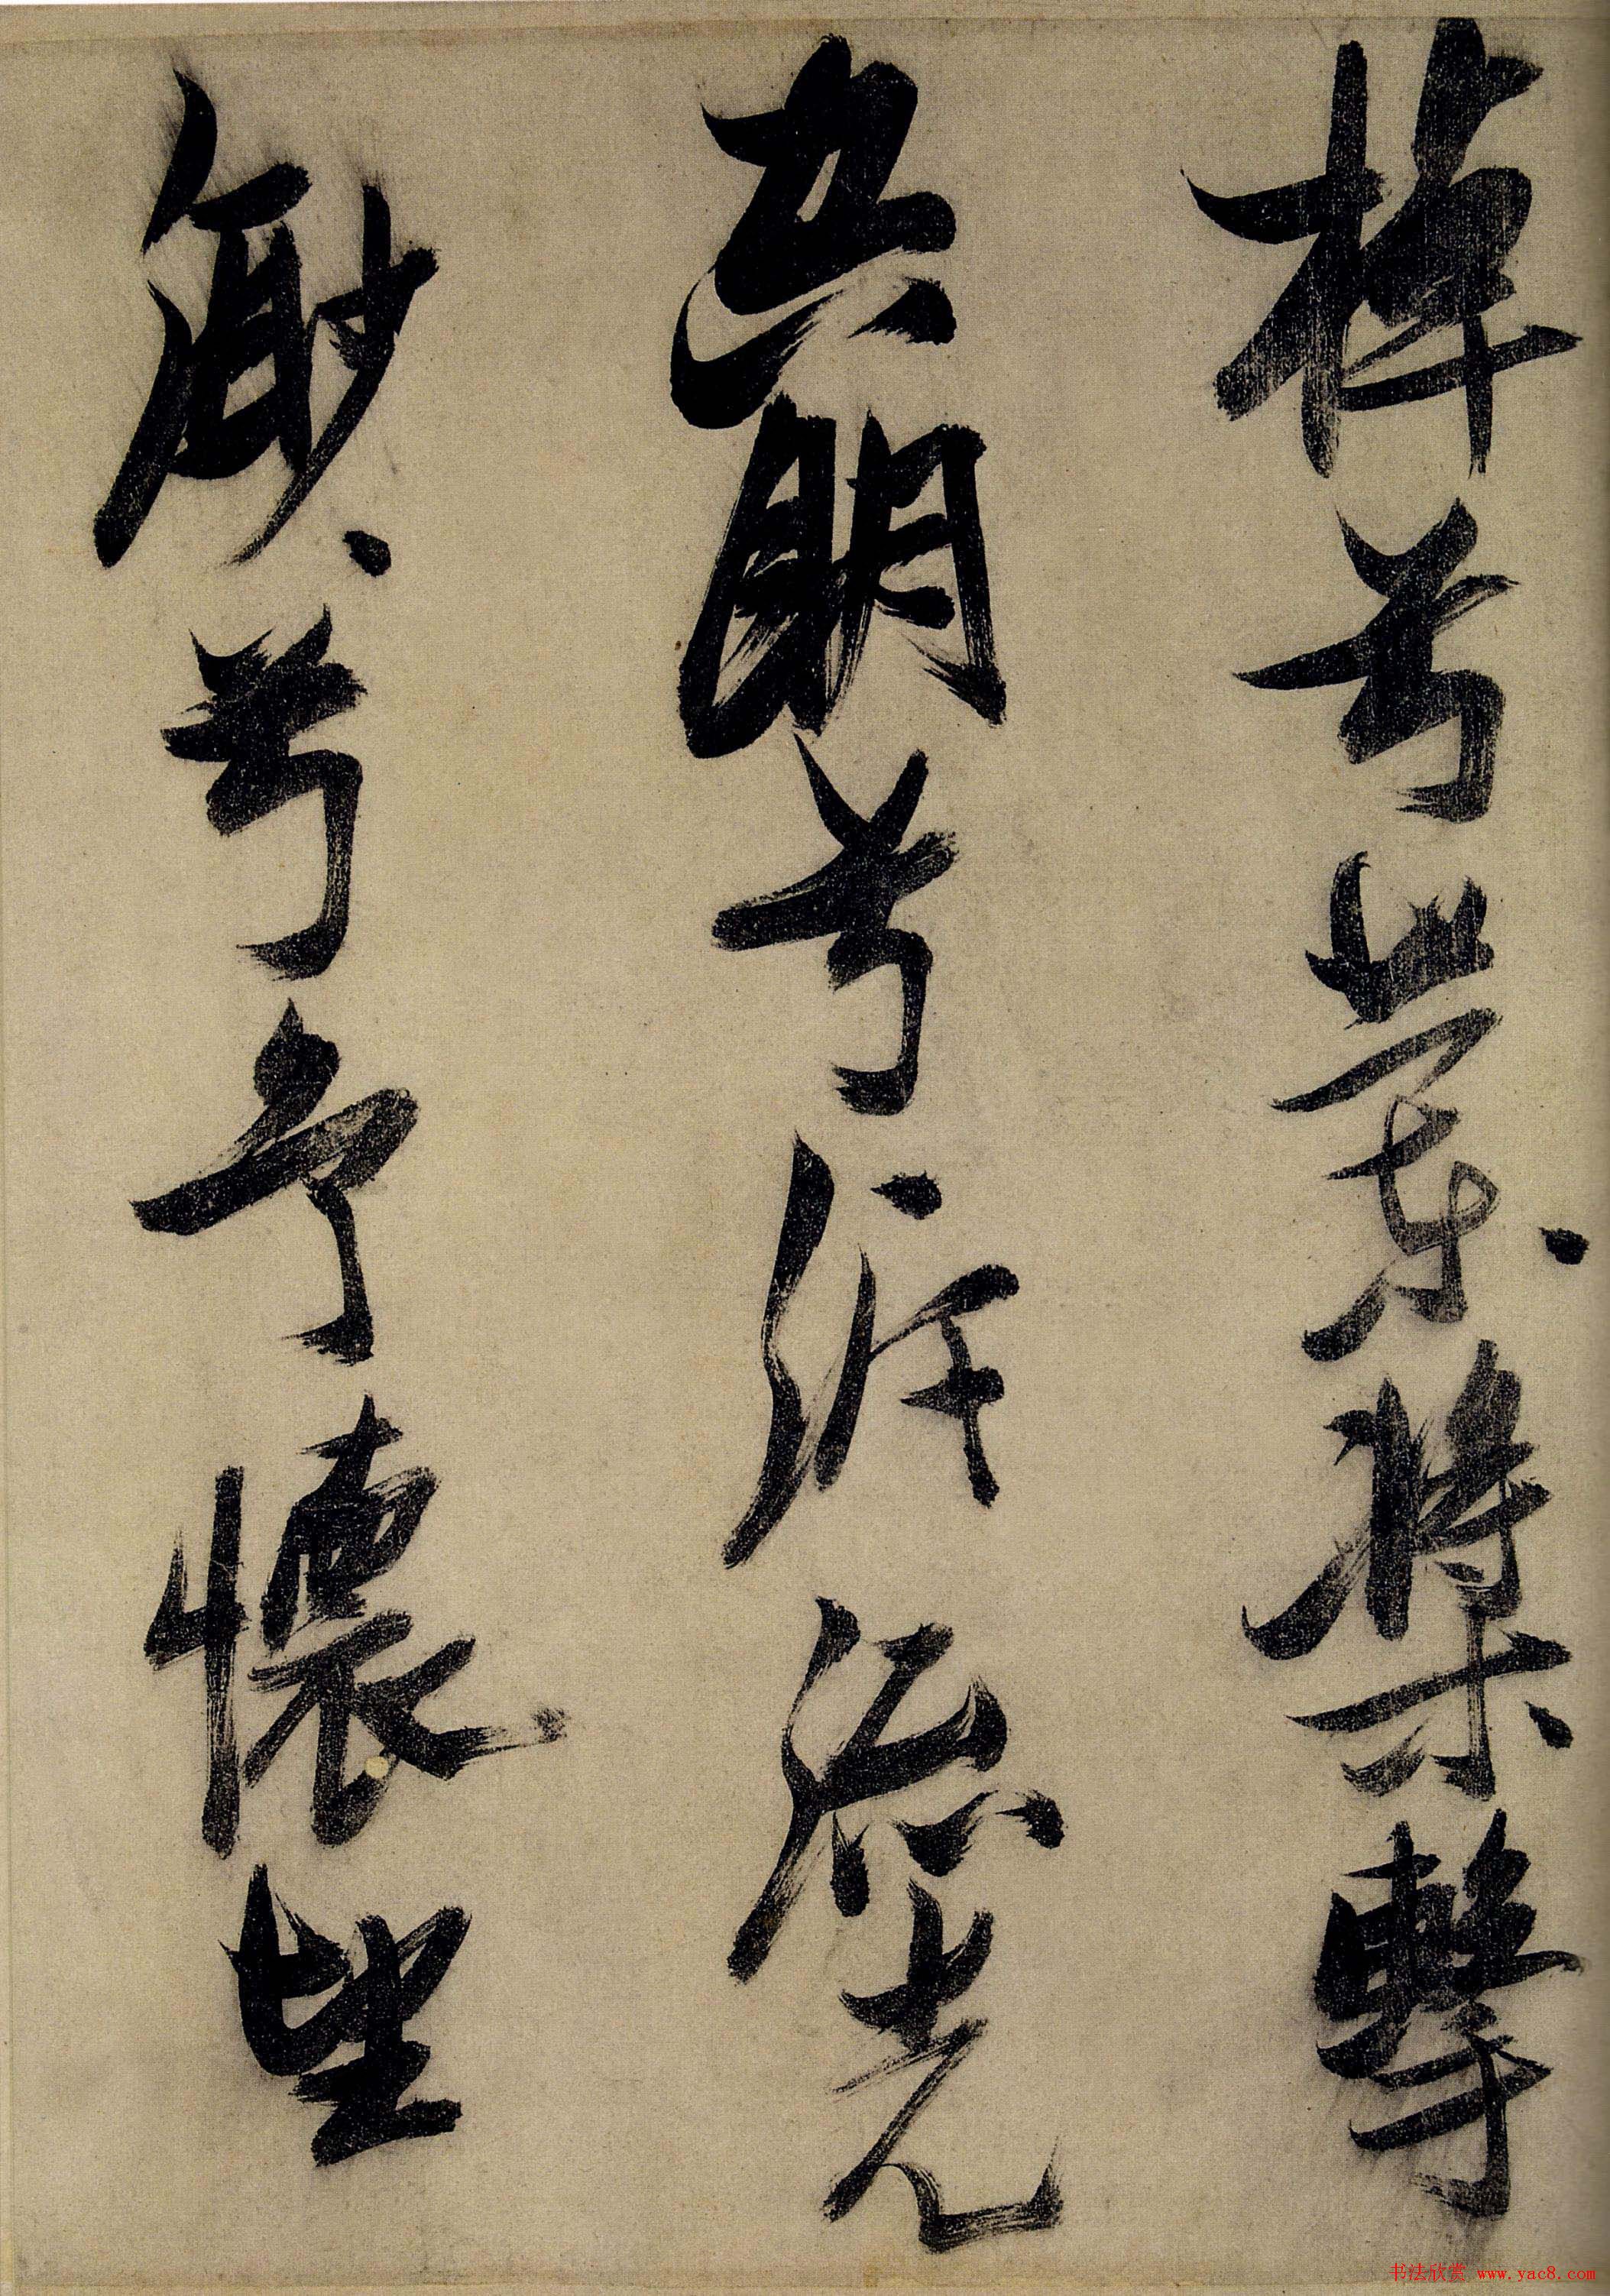 棹兮蘭槳擊
空明兮泝流光
渺渺兮予懷望
书法欣赏 www.yac8.com